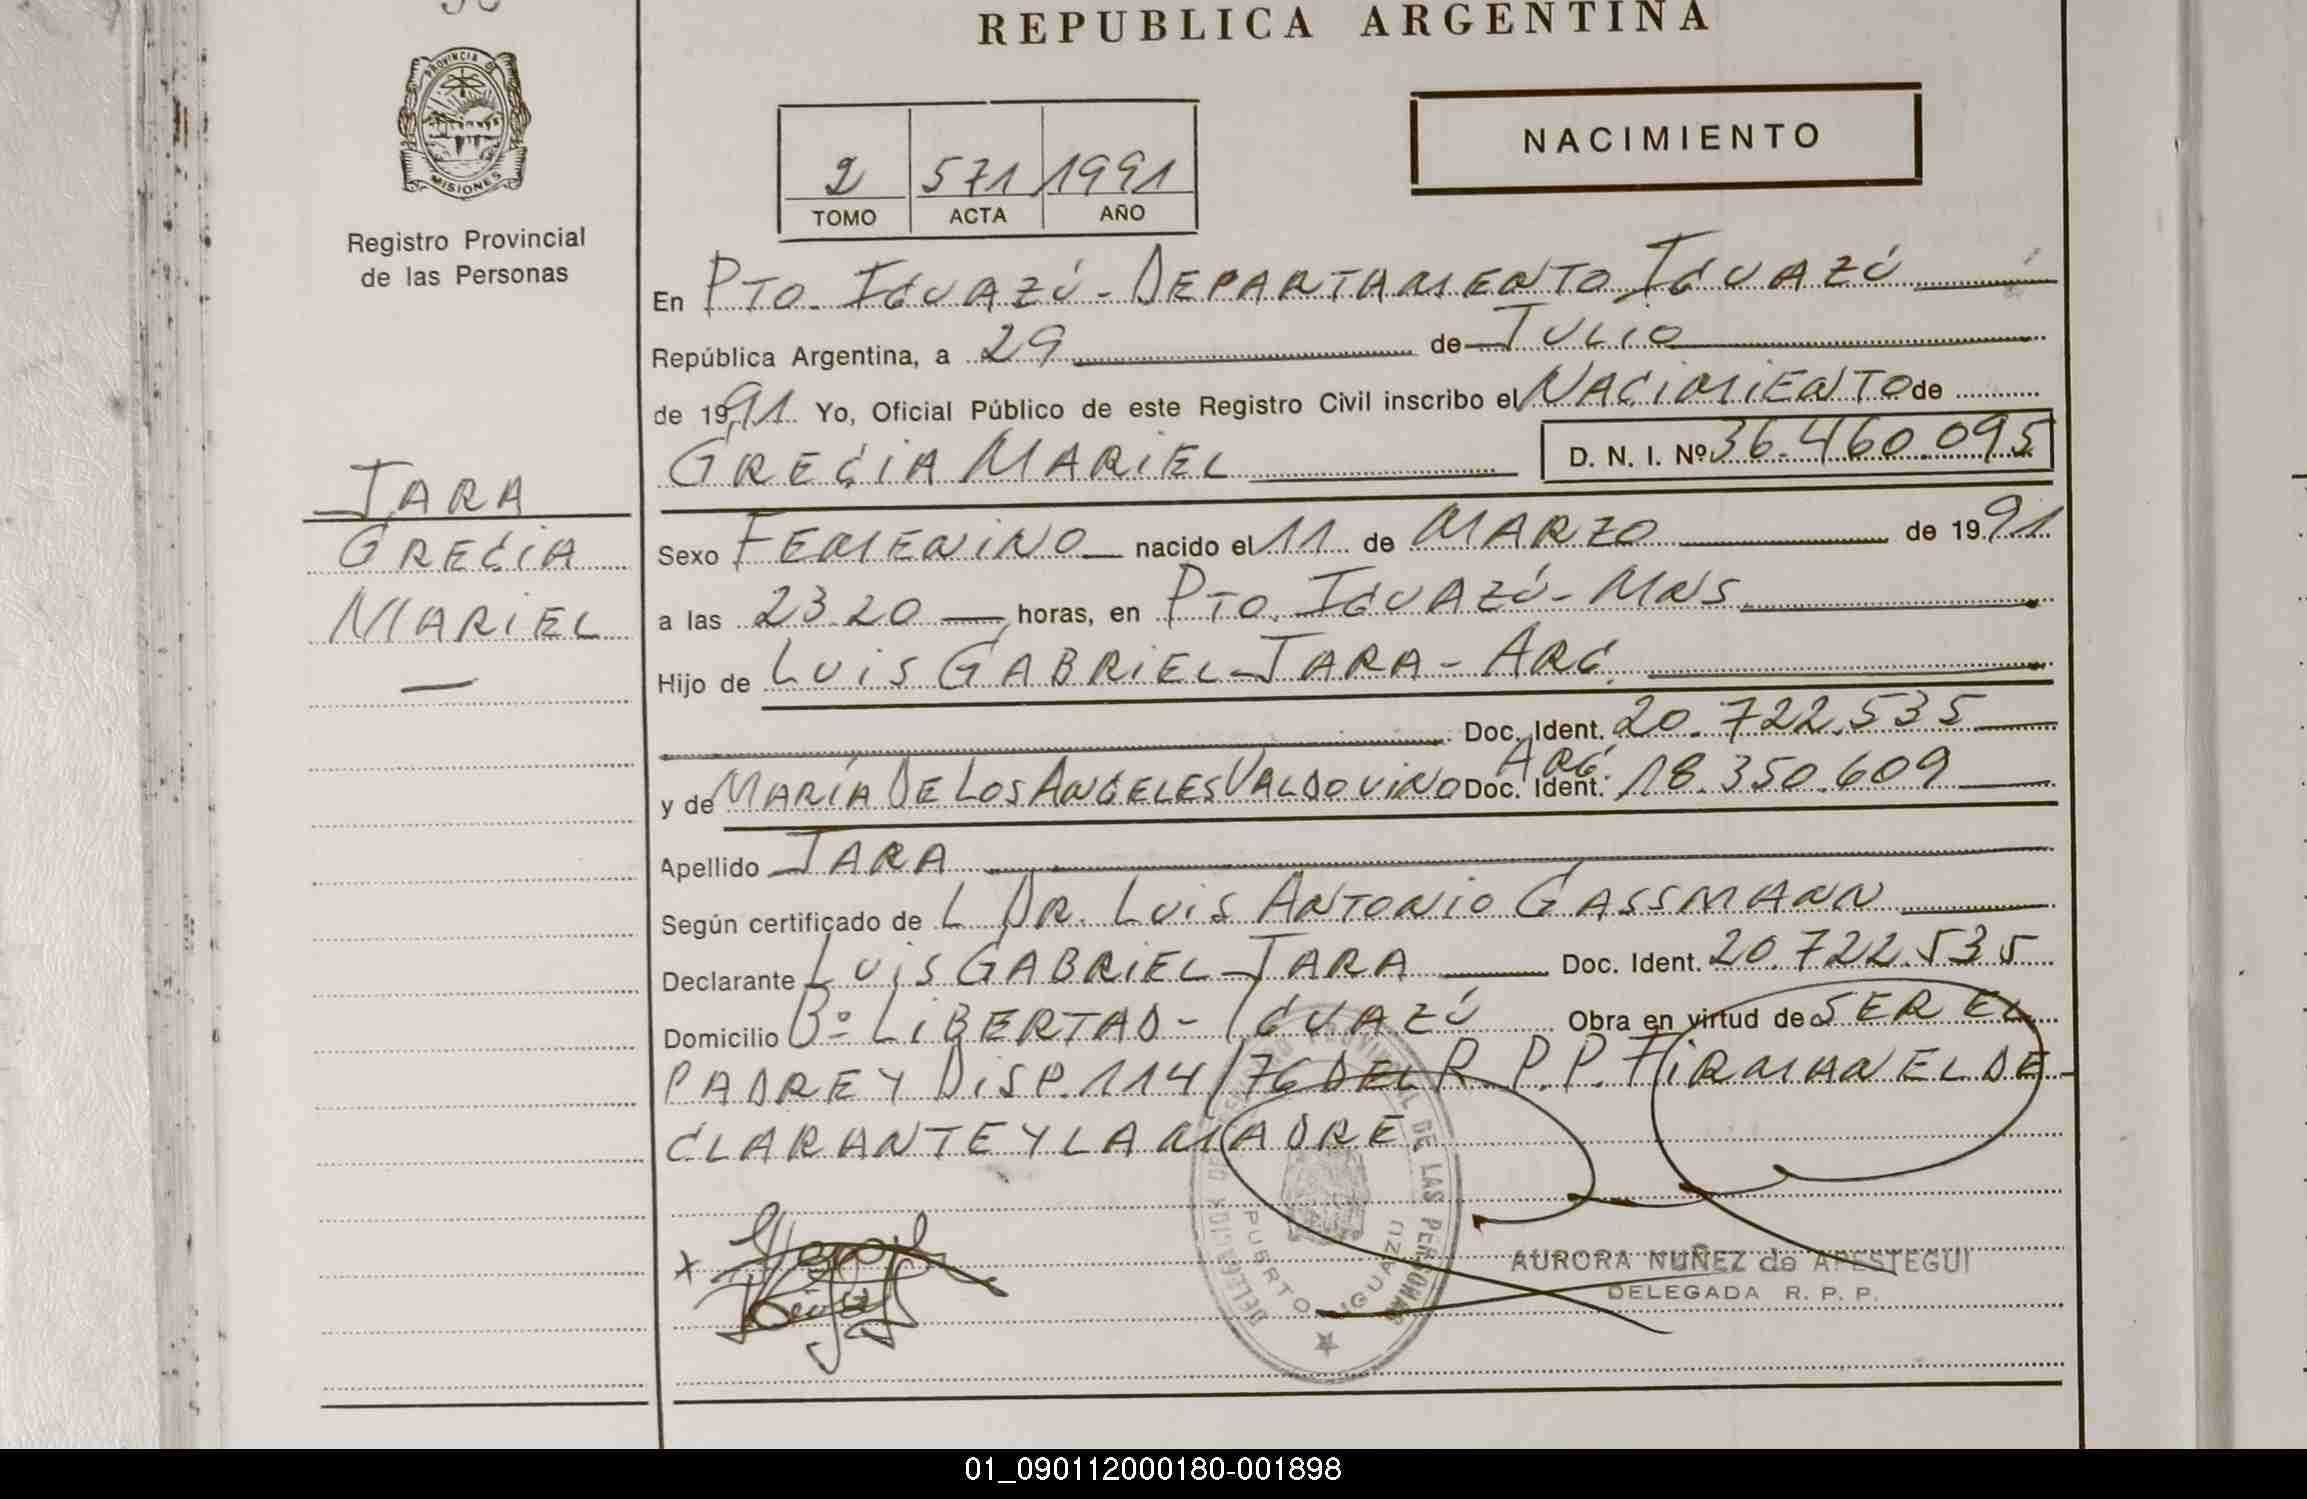 REPUBLICA ARGENTINA
PROVINCIA DE
MISIONES
Registro Provincial
de las Personas
NACIMIENTO
2 571 1991
TOMO ACTA AÑO
En PTO. IGUAZÚ - DEPARTAMENTO IGUAZÚ
República Argentina, a 29 de JULIO
de 1991 Yo, Oficial Público de este Registro Civil inscribo el NACIMIENTO de
GRECIA MARIEL D. N. I. Nº 36.460.095
JARA
GRECIA
MARIEL
Sexo FEMENINO nacido el 11 de MARZO de 1991
a las 23.20 horas, en PTO. IGUAZÚ - MNS
Hijo de LUIS GABRIEL JARA - ARG.
Doc. Ident. 20.722.535
y de MARÍA DE LOS ANGELES VALDOVINO ARG. Doc. Ident. 18.350.609
Apellido JARA
Según certificado de L DR. LUIS ANTONIO GASSMANN
Declarante LUIS GABRIEL JARA Doc. Ident. 20.722.535
Domicilio Bº LIBERTAD - IGUAZÚ Obra en virtud de SER EL
PADRE Y DISP. 114/76 DEL R. P. P. FIRMAN EL DE-
CLARANTE Y LA MADRE
X
PUERTO IGUAZU
AURORA NUÑEZ de APESTEGUI
DELEGADA R. P. P.
01_090112000180-001898